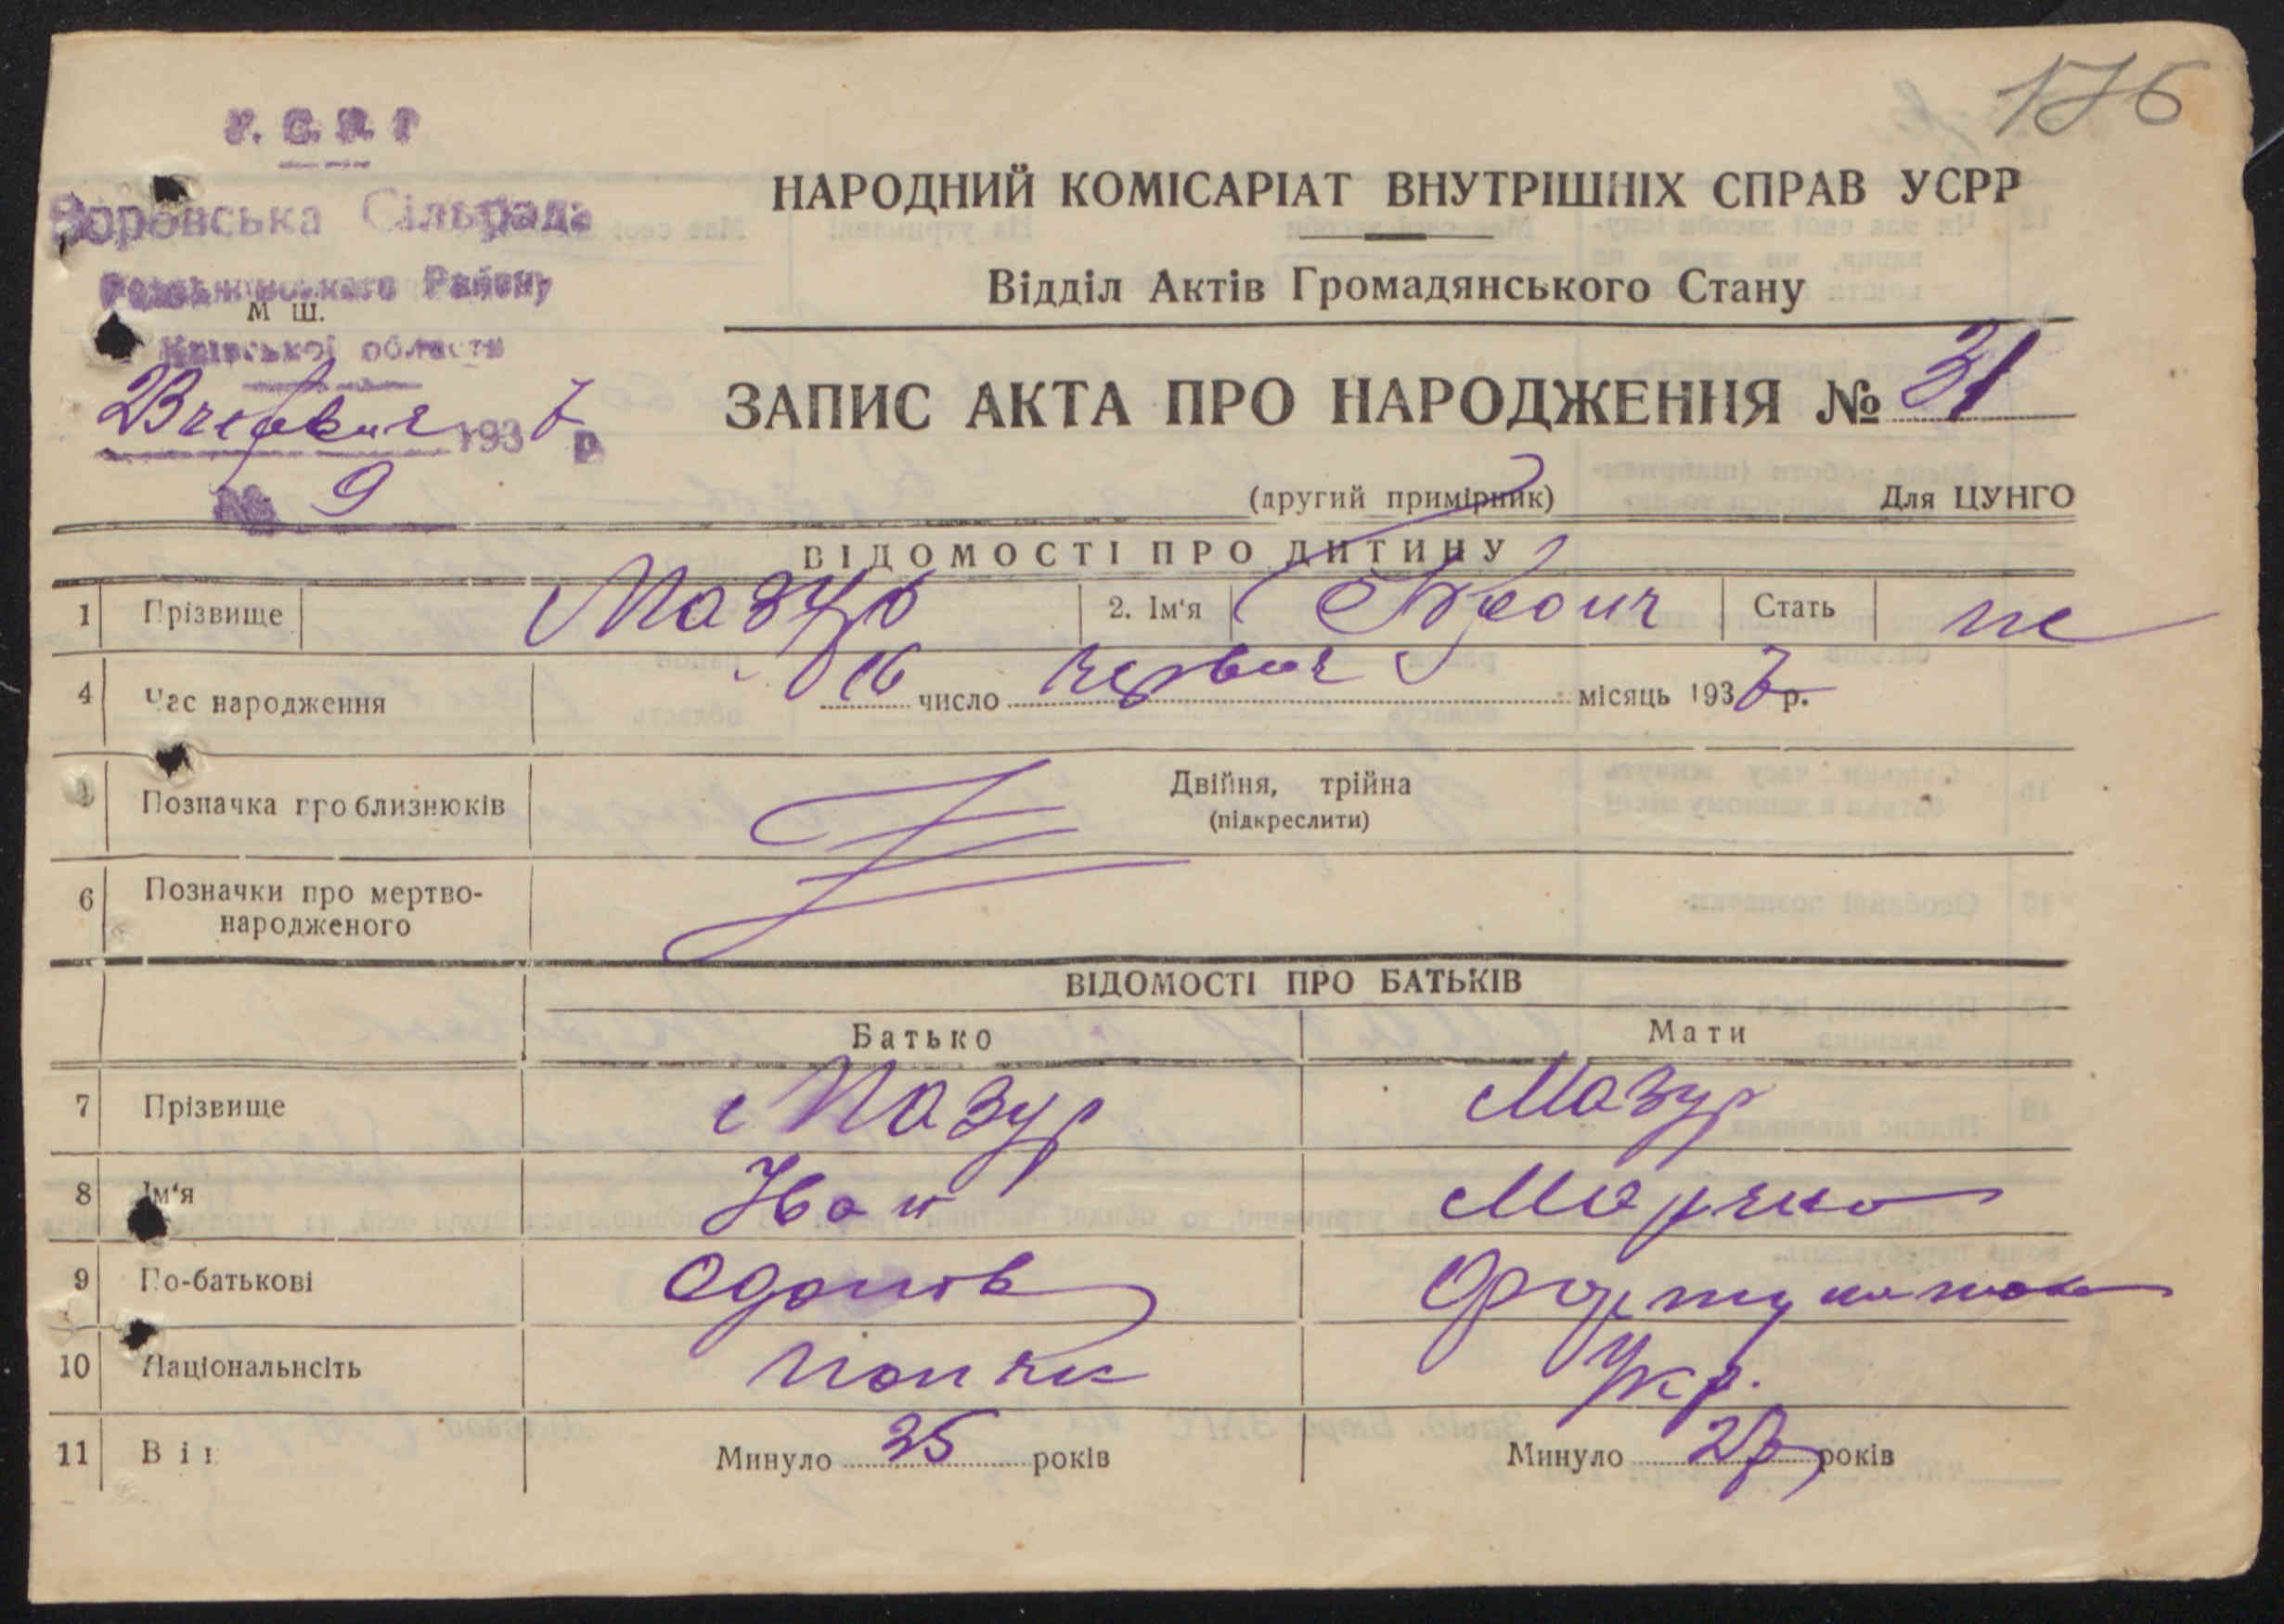 176
У. С. Р. Р
Боровська Сільрада
Району
М Ш.
Київської области
23 червня 1937 р
№ 9
НАРОДНИЙ КОМІСАРІАТ ВНУТРІШНІХ СПРАВ УСРР
Відділ Актів Громадянського Стану
ЗАПИС АКТА ПРО НАРОДЖЕННЯ № 31
(другий примірник) Для ЦУНГО
ВІДОМОСТІ ПРО ДИТИНУ
1 Прізвище Мазур 2. Ім'я Стать
4 Час народження 16 число червня місяць 1937 р.
Позначка про близнюків Двійня, трійна
(підкреслити)
6 Позначки про мертво-
народженого
ВІДОМОСТІ ПРО БАТЬКІВ
Батько Мати
7 Прізвище Мазур Мазур
8 Ім'я Иван
9 По-батькові Адамов
10 Національнсіть Поляк Укр.
11 Вік Минуло 35 років Минуло 27 років